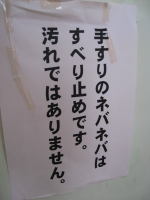 手すりのネバネバは
すべり止めです。
汚れではありません。